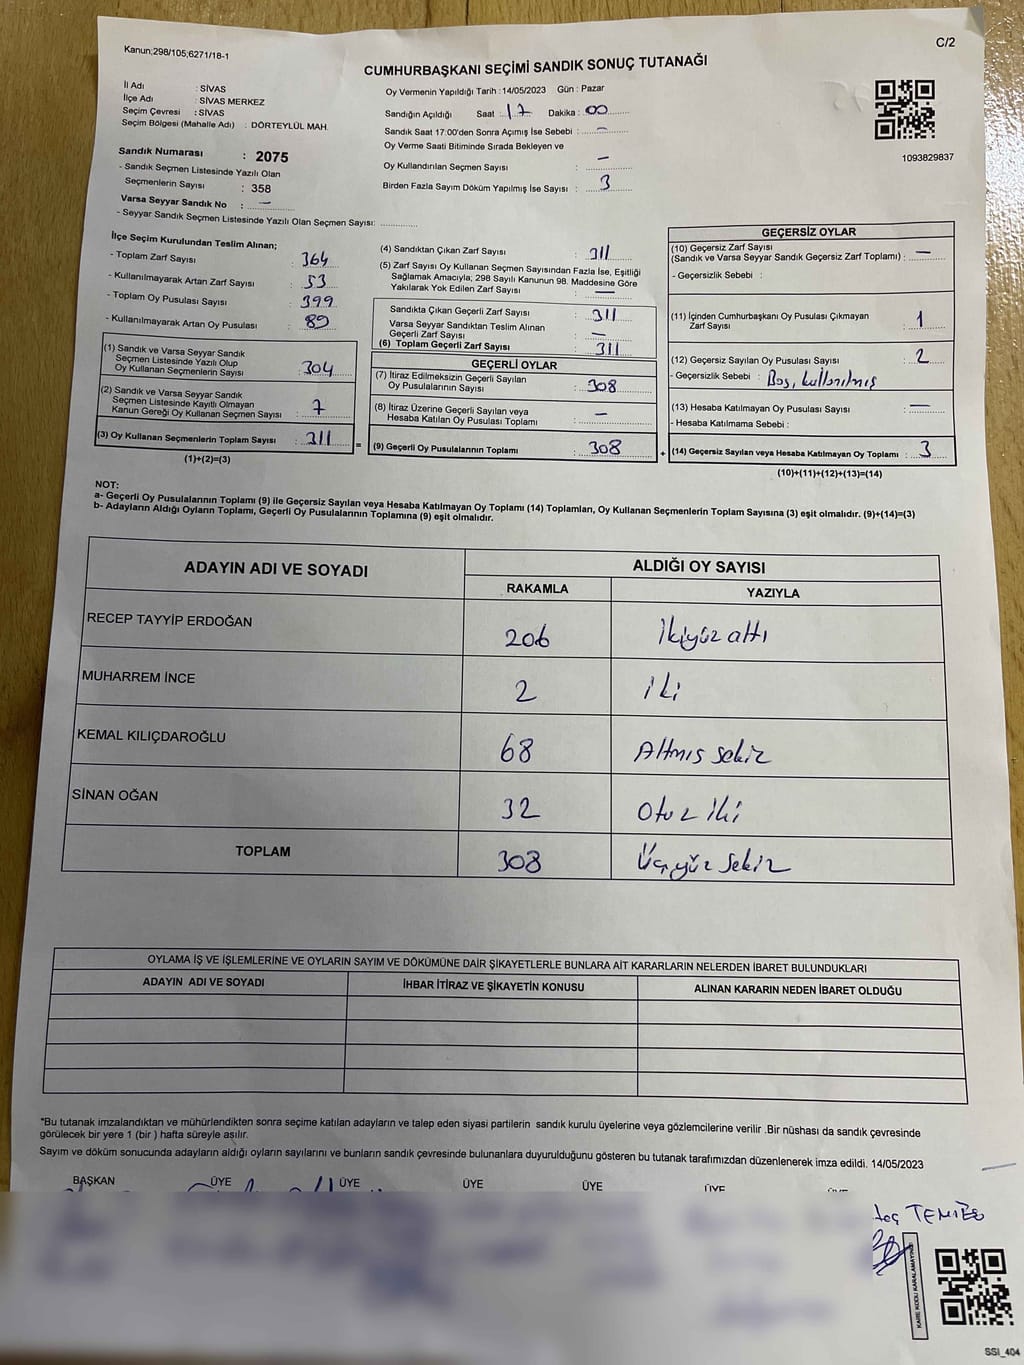 Kanun;298/105;6271/18-1
C/2
CUMHURBAŞKANI SEÇİMİ SANDIK SONUÇ TUTANAĞI
İl Adı : SİVAS
İlçe Adı : SİVAS MERKEZ
Seçim Çevresi : SİVAS
Seçim Bölgesi (Mahalle Adı) : DÖRTEYLÜL MAH.
Sandık Numarası : 2075
- Sandık Seçmen Listesinde Yazılı Olan
Seçmenlerin Sayısı : 358
Varsa Seyyar Sandık No : —
- Seyyar Sandık Seçmen Listesinde Yazılı Olan Seçmen Sayısı: ..............
Oy Vermenin Yapıldığı Tarih : 14/05/2023 Gün : Pazar
Sandığın Açıldığı Saat : 17 Dakika : 00
Sandık Saat 17:00'den Sonra Açımış İse Sebebi : —
Oy Verme Saati Bitiminde Sırada Bekleyen ve
Oy Kullandırılan Seçmen Sayısı : —
Birden Fazla Sayım Döküm Yapılmış İse Sayısı : 3
1093829837
İlçe Seçim Kurulundan Teslim Alınan;
- Toplam Zarf Sayısı : 364
- Kullanılmayarak Artan Zarf Sayısı : 53
- Toplam Oy Pusulası Sayısı : 399
- Kullanılmayarak Artan Oy Pusulası : 89
(1) Sandık ve Varsa Seyyar Sandık
Seçmen Listesinde Yazılı Olup
Oy Kullanan Seçmenlerin Sayısı : 304
(2) Sandık ve Varsa Seyyar Sandık
Seçmen Listesinde Kayıtlı Olmayan
Kanun Gereği Oy Kullanan Seçmen Sayısı : 7
(3) Oy Kullanan Seçmenlerin Toplam Sayısı : 311 =
(1)+(2)=(3)
(4) Sandıktan Çıkan Zarf Sayısı : 311
(5) Zarf Sayısı Oy Kullanan Seçmen Sayısından Fazla İse, Eşitliği
Sağlamak Amacıyla; 298 Sayılı Kanunun 98. Maddesine Göre
Yakılarak Yok Edilen Zarf Sayısı : —
Sandıkta Çıkan Geçerli Zarf Sayısı : 311
Varsa Seyyar Sandıktan Teslim Alınan
Geçerli Zarf Sayısı : —
(6) Toplam Geçerli Zarf Sayısı : 311
GEÇERLİ OYLAR
(7) İtiraz Edilmeksizin Geçerli Sayılan
Oy Pusulalarının Sayısı : 308
(8) İtiraz Üzerine Geçerli Sayılan veya
Hesaba Katılan Oy Pusulası Toplamı : —
(9) Geçerli Oy Pusulalarının Toplamı : 308 +
GEÇERSİZ OYLAR
(10) Geçersiz Zarf Sayısı
(Sandık ve Varsa Seyyar Sandık Geçersiz Zarf Toplamı) : —
- Geçersizlik Sebebi :
(11) İçinden Cumhurbaşkanı Oy Pusulası Çıkmayan
Zarf Sayısı : 1
(12) Geçersiz Sayılan Oy Pusulası Sayısı : 2
- Geçersizlik Sebebi : Boş, kullanılmış
(13) Hesaba Katılmayan Oy Pusulası Sayısı : —
- Hesaba Katılmama Sebebi :
(14) Geçersiz Sayılan veya Hesaba Katılmayan Oy Toplamı : 3
(10)+(11)+(12)+(13)=(14)
NOT:
a- Geçerli Oy Pusulalarının Toplamı (9) ile Geçersiz Sayılan veya Hesaba Katılmayan Oy Toplamı (14) Toplamları, Oy Kullanan Seçmenlerin Toplam Sayısına (3) eşit olmalıdır. (9)+(14)=(3)
b- Adayların Aldığı Oyların Toplamı, Geçerli Oy Pusulalarının Toplamına (9) eşit olmalıdır.
ADAYIN ADI VE SOYADI
ALDIĞI OY SAYISI
RAKAMLA YAZIYLA
RECEP TAYYİP ERDOĞAN 206 İkiyüz altı
MUHARREM İNCE 2 iki
KEMAL KILIÇDAROĞLU 68 Altmış sekiz
SİNAN OĞAN 32 Otuz iki
TOPLAM 308 Üçyüz sekiz
OYLAMA İŞ VE İŞLEMLERİNE VE OYLARIN SAYIM VE DÖKÜMÜNE DAİR ŞİKAYETLERLE BUNLARA AİT KARARLARIN NELERDEN İBARET BULUNDUKLARI
ADAYIN ADI VE SOYADI İHBAR İTİRAZ VE ŞİKAYETİN KONUSU ALINAN KARARIN NEDEN İBARET OLDUĞU
*Bu tutanak imzalandıktan ve mühürlendikten sonra seçime katılan adayların ve talep eden siyasi partilerin sandık kurulu üyelerine veya gözlemcilerine verilir .Bir nüshası da sandık çevresinde
görülecek bir yere 1 (bir ) hafta süreyle asılır.
Sayım ve döküm sonucunda adayların aldığı oyların sayılarını ve bunların sandık çevresinde bulunanlara duyurulduğunu gösteren bu tutanak tarafımızdan düzenlenerek imza edildi. 14/05/2023
BAŞKAN ÜYE ÜYE ÜYE ÜYE ÜYE ÜYE
KARE KODU KARALAMAYINIZ
SSI_404